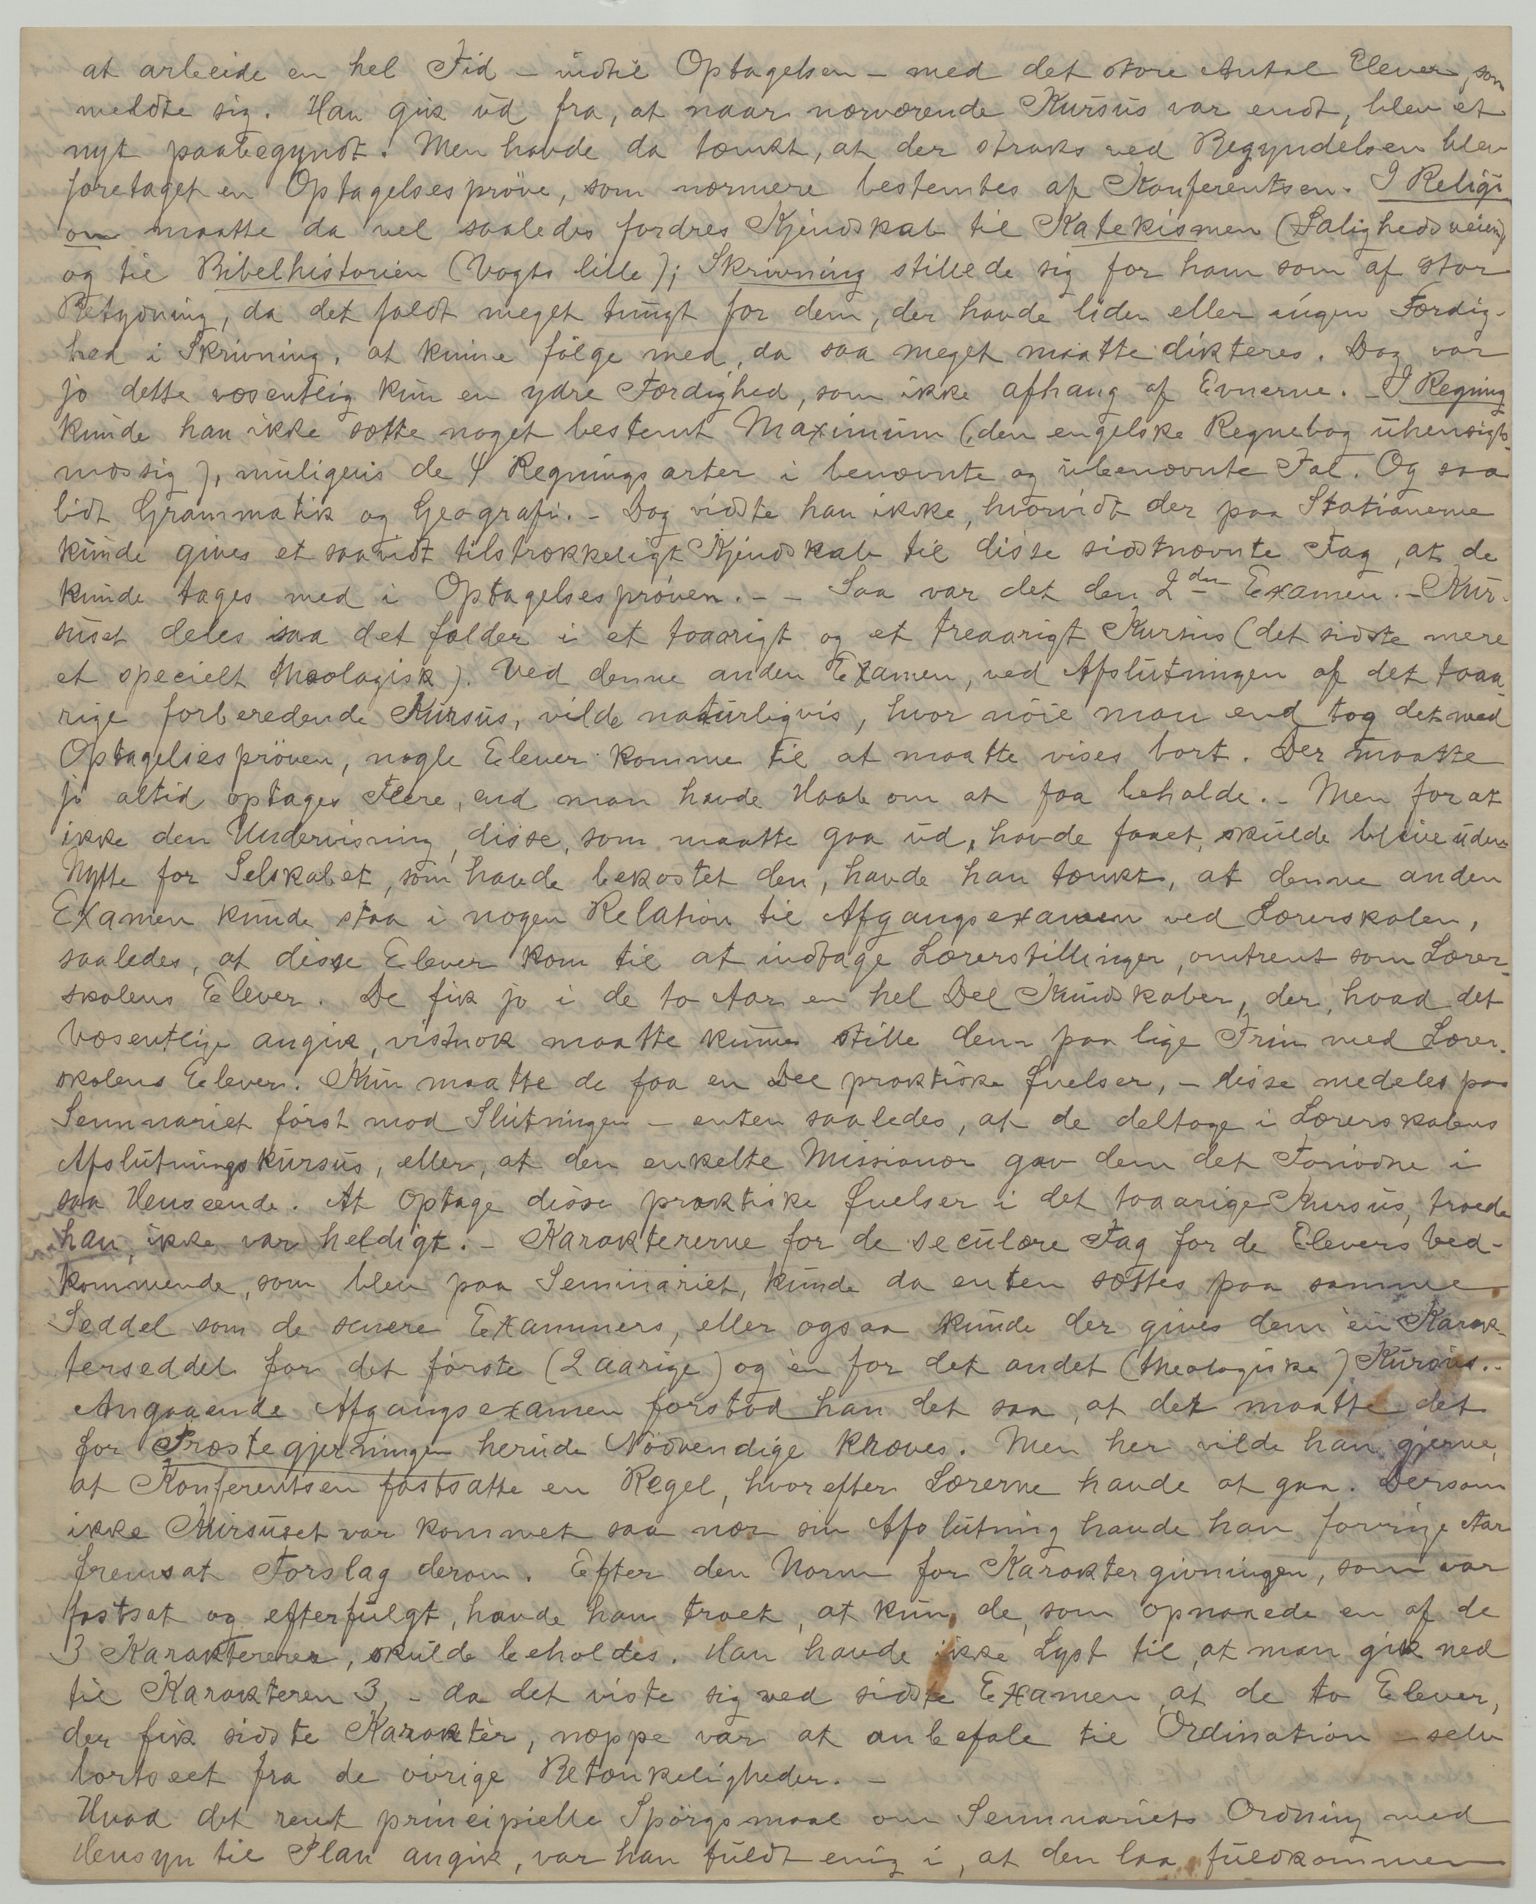 at arbeide en hel Tid – indtil Optagelsen – med det store Antal Elever, som
meldte sig. Han gik ud fra, at naar nærværende Kursus var endt, blev et
nyt paabegyndt. Men havde da tænkt, at der straks ved Begyndelsen blev
foretaget en Optagelsesprøve, som nærmere bestemtes af Konferentsen. I Religi-
on maatte da vel saaledes fordres Kjendskab til Katekismen (Salighedsveien)
og til Bibelhistorien (Vogts lille); Skrivning stillede sig for ham som af stor
Betydning, da det faldt meget tungt for dem, der havde liden eller ingen Færdig-
hed i Skrivning, at kunne følge med, da saa meget maatte dikteres. Dog var
jo dette væsentlig kun en ydre Færdighed, som ikke afhang af Evnerne. – I Regning
kunde han ikke sætte noget bestemt Maximum (den engelske Regnebog uhensigts-
mæssig), muligens de 4 Regningsarter i benævnte og ubenævnte Tal. Og saa
lidt Grammatik og Geografi. – Dog vidste han ikke, hvorvidt der paa Stationerne
kunde gives et saavidt tilstrækkeligt Kjendskab til disse sidstnævnte Fag, at de
kunde tages med i Optagelsesprøven. – – Saa var det den 2den Examen. – Kur-
suset deles saa det falder i et toaarigt og et treaarigt Kursus (det sidste mere
et specielt theologisk). Ved denne anden Examen, ved Afslutningen af det toaa-
rige forberedende Kursus, vilde naturligvis, hvor nøie man end tog det med
Optagelsesprøven, nogle Elever komme til at maatte vises bort. Der maatte
jo altid optages Flere, end man havde Haab om at faa beholde. – Men for at
ikke den Undervisning, disse, som maatte gaa ud, havde faaet, skulde blive uden
Nytte for Selskabet, som havde bekostet den, havde han tænkt, at denne anden
Examen kunde staa i nogen Relation til Afgangsexamen ved Lærerskolen,
saaledes, at disse Elever kom til at indtage Lærerstillinger, omtrent som Lærer-
skolens Elever. De fik jo i de to Aar en hel Del Kundskaber, der, hvad det
Væsentlige angik, vistnok maatte kunne stille dem paa lige Trin med Lærer-
skolens Elever. Kun maatte de faa en Del praktiske Øvelser, – disse medeles paa
Seminariet først mod Slutningen – enten saaledes, at de deltoge i Lærerskolens
Afslutningskursus, eller, at den enkelte Missionær gav dem det Fornødne i
saa Henseende. At optage disse praktiske Øvelser i det toaarige Kursus, troede
han, ikke var heldigt. – Karaktererne for de seculære Fag for de Elevers Ved-
kommende, som blev paa Seminariet, kunde da enten sættes paa samme
Seddel som de senere Examiners, eller ogsaa kunde der gives dem èn Karak-
terseddel for det første (2 aarige) og èn for det andet (theologiske) Kursus. –
Angaaende Afgangsexamen forstod han det saa, at der maatte det
for Præstegjerningen herude Nødvendige kræves. Men her vilde han gjerne,
at Konferentsen fastsatte en Regel, hvorefter Lærerne havde at gaa. Dersom
ikke Kursuset var kommet saa nær sin Afslutning havde han forrige Aar
fremsat Forslag derom. Efter den Norm for Karaktergivningen, som var
fastsat og efterfulgt, havde han troet, at kun de, som opnaaede en af de
3 Karakterer, skulde beholdes. Han havde ikke Lyst til, at man gik ned
til Karakteren 3, – da det viste sig ved sidste Examen, at de to Elever,
der fik sidste Karakter, næppe var at anbefale til Ordination – selv
bortseet fra de øvrige Betænkeligheder. –
Hvad det rent principielle Spørgsmaal om Seminariets Ordning med
Hensyn til Plan angik, var han fuldt enig i, at den laa fuldkommen